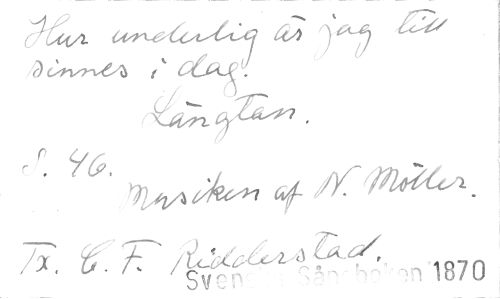 Hur underlig är jag till
sinnes i dag.
Längtan.
S. 46.
Musiken af N. Möller.
Tx. C. F. Ridderstad.
Svenska Sångboken 1870